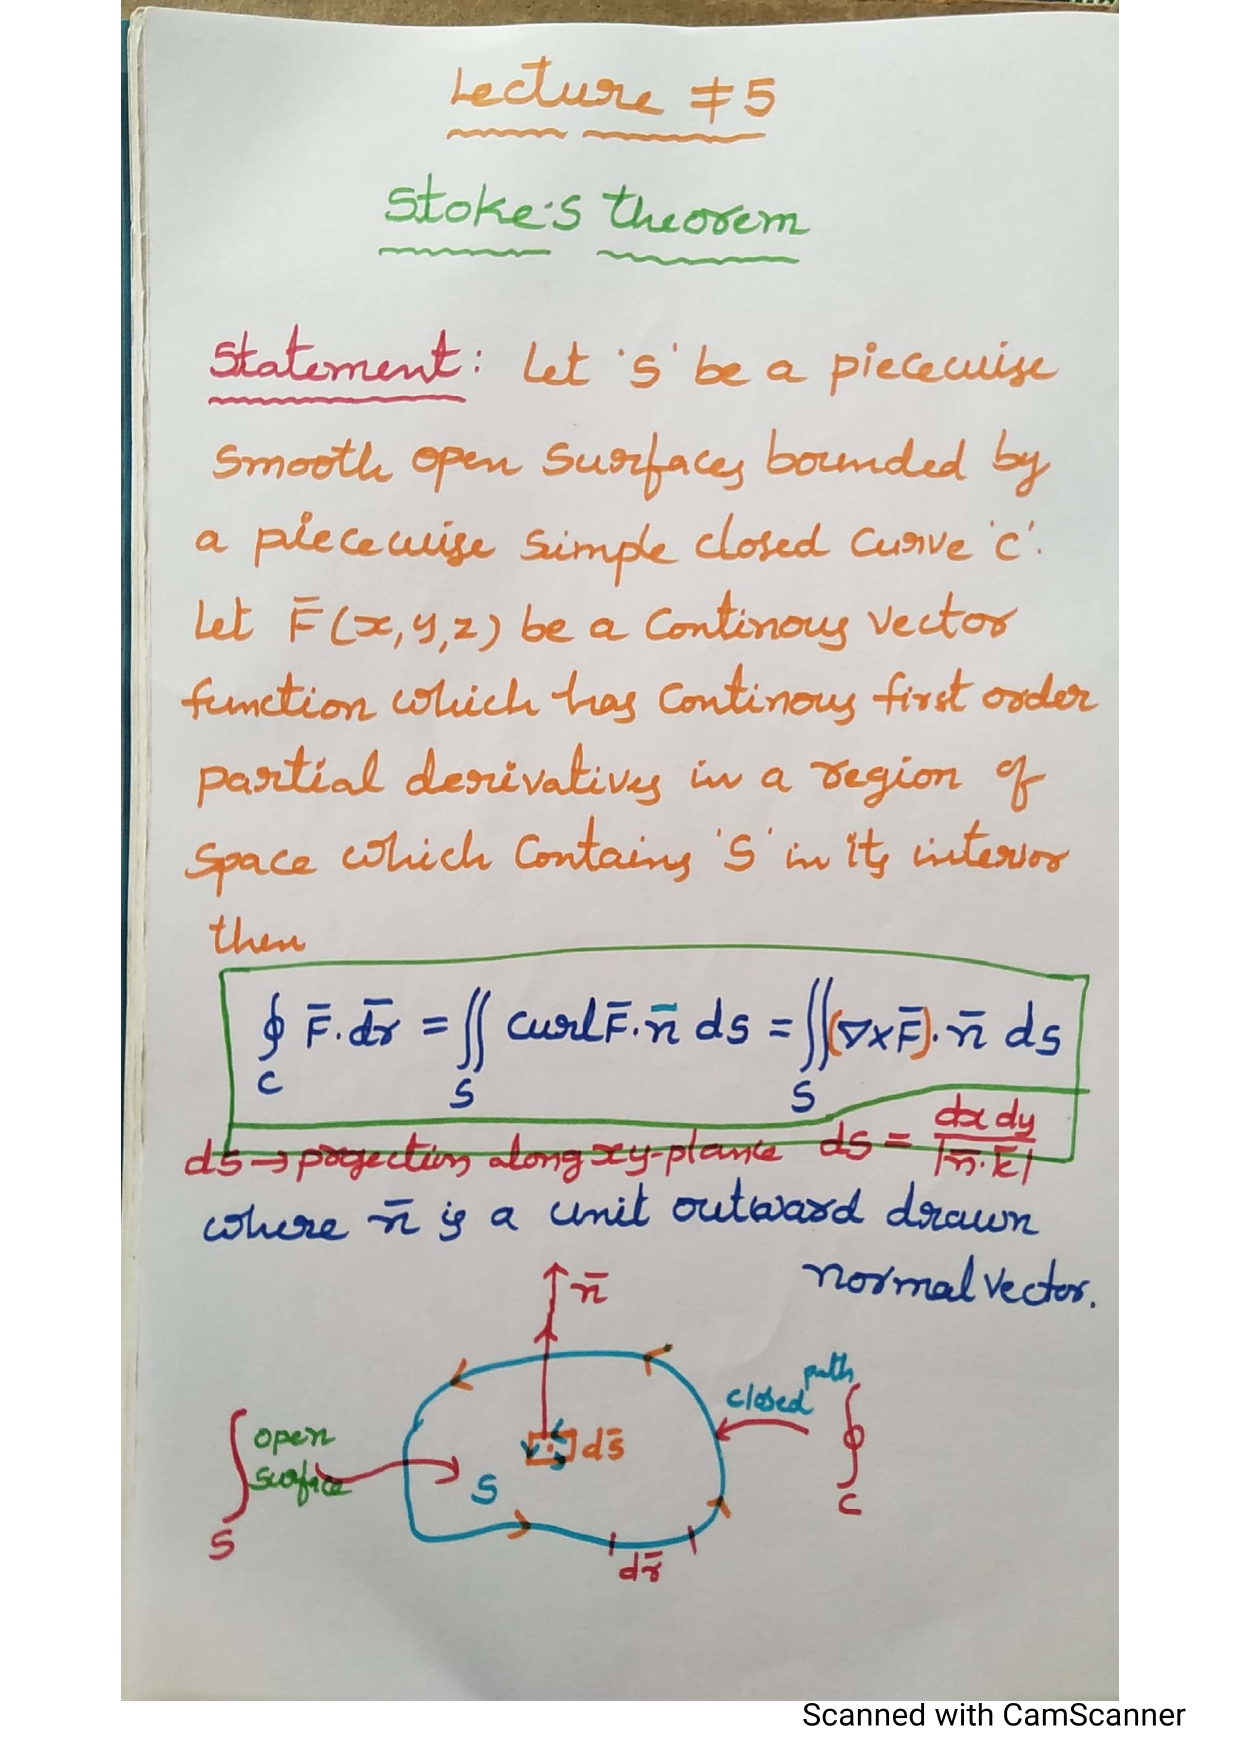 Lecture #5
Stoke's theorem
Statement: Let 's' be a piecewise
smooth open surfaces bounded by
a piecewise simple closed curve 'c'.
Let F̄(x,y,z) be a continous vector
function which has continous first order
partial derivatives in a region of
space which contains 'S' in its interior
then
∮_C F̄.d̄r̄ = ∬_S curl F̄.n̄ ds = ∬_S (∇×F̄).n̄ ds
ds → projection along xy-plance ds = dx dy / |n̄.k̄|
where n̄ is a unit outward drawn
normal vector.
n̄
closed path
∮_C
open
surface
∫_S
S
ds̄
dr̄
Scanned with CamScanner